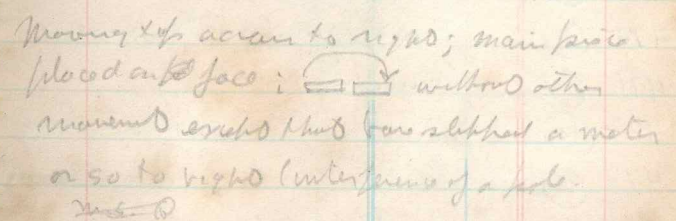 Moving xxps across to right; main piece
placed on face; without other
movement except that base slipped a meter
or so to right (interference of a pole.